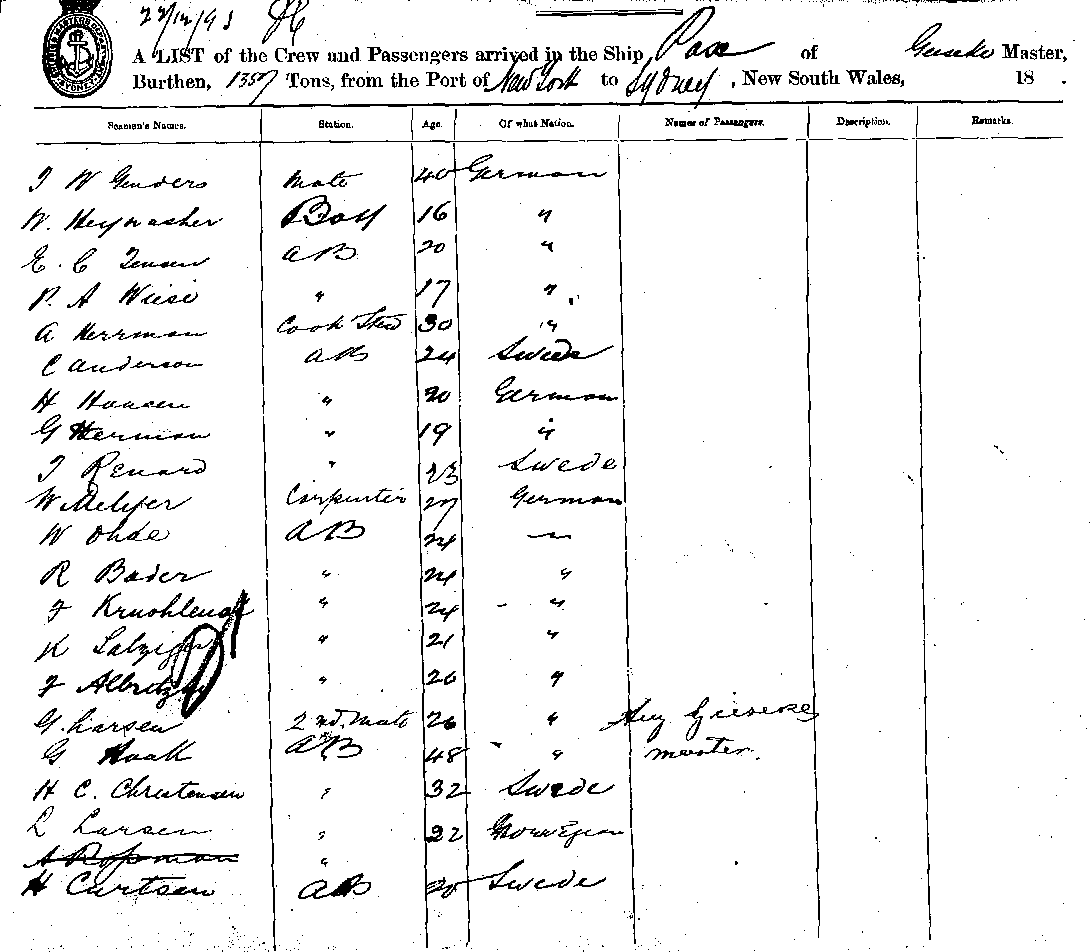 22/12/93
A LIST of the Crew and Passengers arrived in the Ship, of Master,
Burthen, 1357 Tons, from the Port of New York to Sydney, New South Wales, 18 .
Seamen's Names. Station. Age. Of what Nation. Names of Passengers. Description. Remarks.
J W Genders Mate 40 German
W. Heywasher Boy 16 "
E. C Jensen AB 20 "
P. A Wiese " 17 "
A Herrman Cook Stew 30 "
C Anderson AB 24 Swede
H Hansen " 20 German
G Herman " 19 "
J Renard " 23 Swede
W Carpenter 27 German
W Ohde AB 24 "
R Bader " 24 "
F " 24 "
K Salziger " 21 "
F " 20 "
G. Larsen 2nd. Mate 26 "
G Haak AB 48 " master.
H C. Christensen " 32 Swede
L Larsen " 22 Norwegian
"
H Curtsen AB 20 Swede